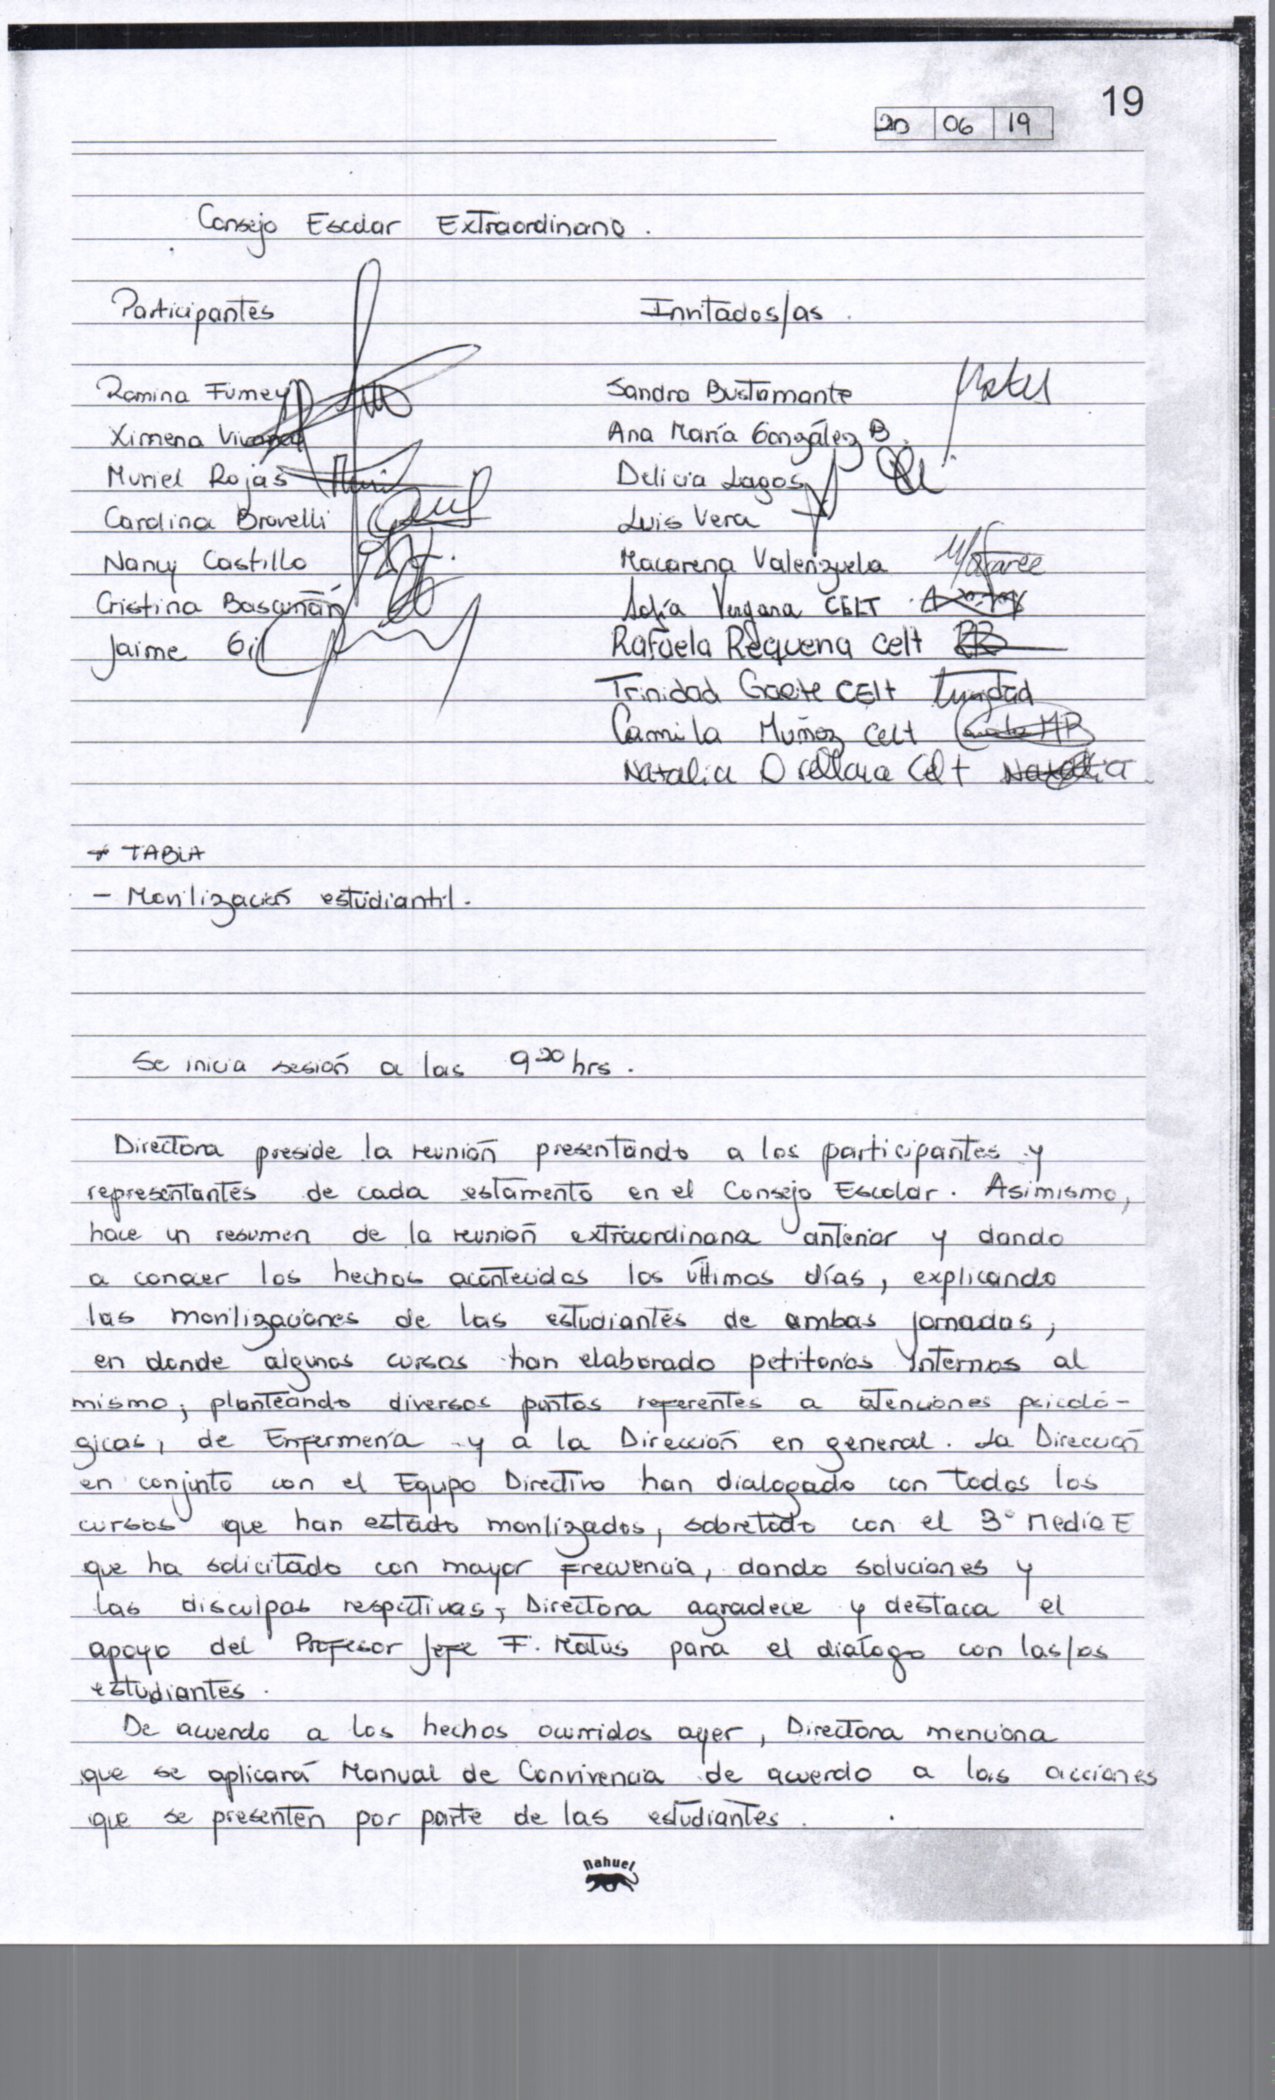 19
20 06 19
Consejo Escolar Extraordinario.
Participantes
Ramina Fumey
Ximena
Muriel Rojas
Carolina Bravelli
Nancy Castillo
Cristina Bascuñán
Jaime Gil
Invitados/as.
Sandra Bustamante
Ana María González B.
Delicia Lagos
Luis Vera
Macarena Valenzuela
Sofía Vergara CELT
Rafaela Requena celt
Trinidad Gaete CELT Trinidad
Camila Muñoz celt
Natalia Orellana Celt Natalia
* TABLA
- Movilización estudiantil.
Se inicia sesión a las 9 20 hrs.
Directora preside la reunión presentando a los participantes y
representantes de cada estamento en el Consejo Escolar. Asimismo,
hace un resumen de la reunión extraordinaria anterior y dando
a conocer los hechos acontecidos los últimos días, explicando
las movilizaciones de las estudiantes de ambas jornadas,
en donde algunos cursos han elaborado petitorios internos al
mismo, planteando diversos puntos referentes a atenciones psicoló-
gicas, de Enfermería y a la Dirección en general. La Dirección
en conjunto con el Equipo Directivo han dialogado con todos los
cursos que han estado movilizados, sobretodo con el 3° Medio E
que ha solicitado con mayor frecuencia, dando soluciones y
las disculpas respectivas, Directora agradece y destaca el
apoyo del Profesor Jefe F. Matus para el dialogo con las/os
estudiantes.
De acuerdo a los hechos ocurridos ayer, Directora menciona
que se aplicará Manual de Convivencia de acuerdo a las acciones
que se presenten por parte de las estudiantes.
nahuel